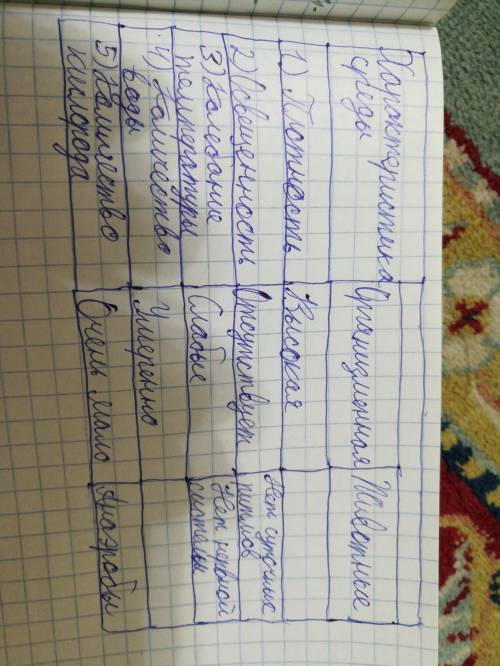 Характеристика среды
Организменная
Животные
1) Плотность
Высокая
2) Освещенность
Отсутствует
Нет суточных ритмов
3) Колебание температуры
Слабые
Нет нервной системы
4) Количество воды
Умеренно
5) Количество кислорода
Очень мало
Анаэробы